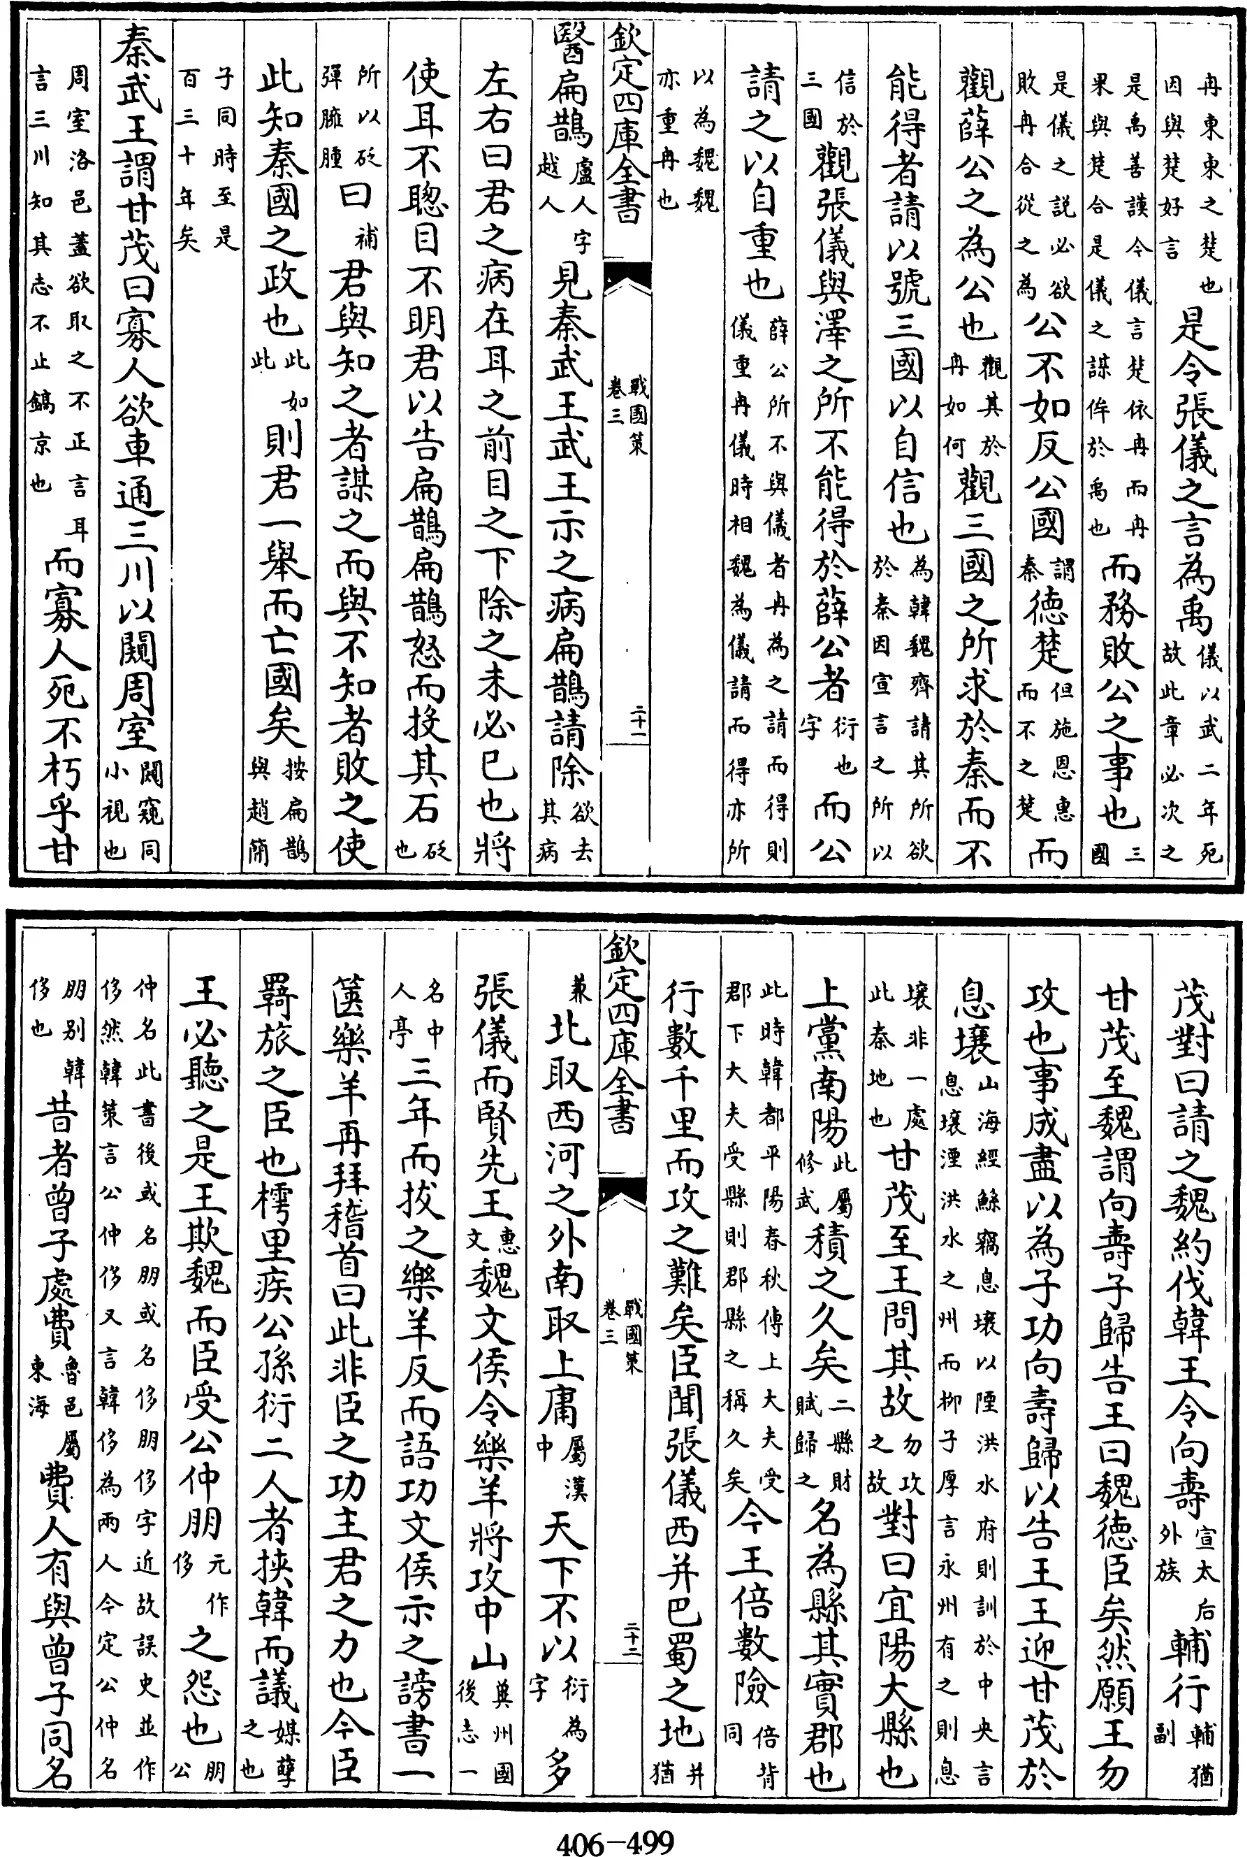 冉東東之楚也因與楚好言是令張儀之言為禹儀以武二年死故此章必次之
是禹善謨今儀言楚依冉而冉果與楚合是儀之謀侔於禹也而務敗公之事也三國
是儀之説必欲敗冉合從之為公不如反公國謂秦德楚但施恩惠而不之楚而
觀薛公之為公也觀其於冉如何觀三國之所求於秦而不
能得者請以號三國以自信也為韓魏齊請其所欲於秦因宣言之所以
信於三國觀張儀與澤之所不能得於薛公者衍也字而公
請之以自重也薛公所不與儀者冉為之請而得則儀重冉儀時相魏為儀請而得亦所
以為魏魏亦重冉也
欽定四庫全書 戰國策卷三 二十一
醫扁鵲盧人字越人見秦武王武王示之病扁鵲請除欲去其病
左右曰君之病在耳之前目之下除之未必已也將
使耳不聰目不明君以告扁鵲扁鵲怒而投其石砭也
所以砭彈臃腫曰補君與知之者謀之而與不知者敗之使
此知秦國之政也此如此則君一舉而亡國矣按扁鵲與趙簡
子同時至是百三十年矣
秦武王謂甘茂曰寡人欲車通三川以闚周室闚窺同小視也
周室洛邑蓋欲取之不正言耳言三川知其志不止鎬京也而寡人死不朽乎甘
茂對曰請之魏約伐韓王令向壽宣太后外族輔行輔猶副
甘茂至魏謂向壽子歸告王曰魏德臣矣然願王勿
攻也事成盡以為子功向壽歸以告王王迎甘茂於
息壤山海經鯀竊息壤以陻洪水府則訓於中央言息壤湮洪水之州而柳子厚言永州有之則息
壤非一處此秦地也甘茂至王問其故勿攻之故對曰宜陽大縣也
上黨南陽此屬修武積之久矣二縣財賦歸之名為縣其實郡也
此時韓都平陽春秋傳上大夫受郡下大夫受縣則郡縣之稱久矣今王倍數險倍背同
行數千里而攻之難矣臣聞張儀西并巴蜀之地并猶
欽定四庫全書 戰國策卷三 二十二
兼北取西河之外南取上庸屬漢中天下不以衍為字多
張儀而賢先王惠文魏文侯令樂羊將攻中山冀州國後志一
名中人亭三年而拔之樂羊反而語功文侯示之謗書一
篋樂羊再拜稽首曰此非臣之功主君之力也今臣
羇旅之臣也樗里疾公孫衍二人者挾韓而議媒孽之也
王必聽之是王欺魏而臣受公仲朋元作侈之怨也朋公
仲名此書後或名朋或名侈朋侈字近故誤史並作侈然韓策言公仲侈又言韓侈為兩人今定公仲名
朋別韓侈也昔者曾子處費魯邑屬東海費人有與曾子同名
406-499